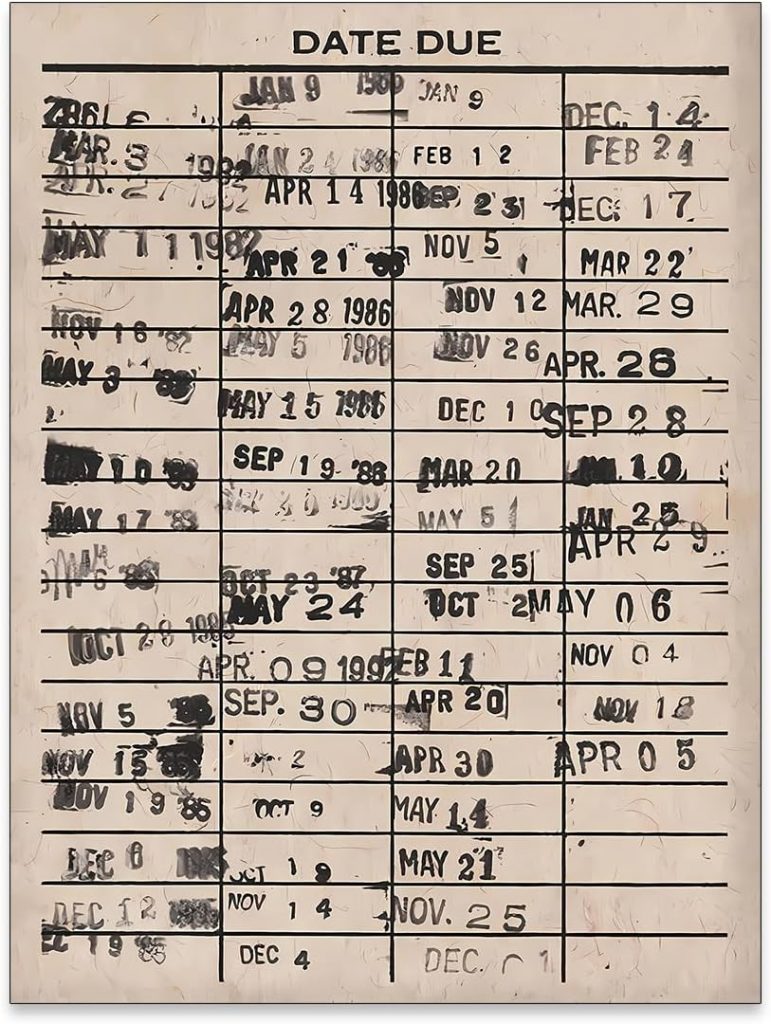 DATE DUE
MAR. 3 1982
APR. 2
MAY 11 1982
NOV 16 '82
MAY 3 '83
MAY 10 '83
MAY 17 '83
MAR 6
OCT 28
NOV 5
NOV 15 '85
NOV 19 '85
DEC 6
DEC 12
19 '85
JAN 9 1986
JAN 24 1986
APR 14 1986
APR 21 '86
APR 28 1986
MAY 5 1986
MAY 15 1986
SEP 19 '86
OCT 23 '87
MAY 24
APR. 09 1992
SEP. 30
2
OCT 9
OCT 18
NOV 14
DEC 4
JAN 9
FEB 12
SEP 23
NOV 5
NOV 12
NOV 26
DEC 10
MAR 20
MAY 5
SEP 25
OCT 2
FEB 11
APR 20
APR 30
MAY 14
MAY 21
NOV. 25
DEC. 1
DEC. 14
FEB 24
DEC. 17
MAR 22
MAR. 29
APR. 26
SEP 28
10
JAN 25
APR 29
MAY 06
NOV 04
NOV 18
APR 05